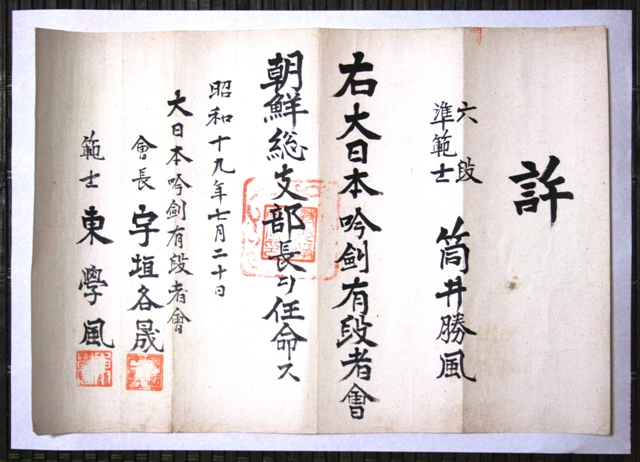 許
六段
準範士
筒井勝風
右大日本吟剣有段者會
朝鮮総支部長ヲ任命ス
昭和十九年七月二十日
大日本吟剣有段者會
會長 宇垣各晟
範士 東學風